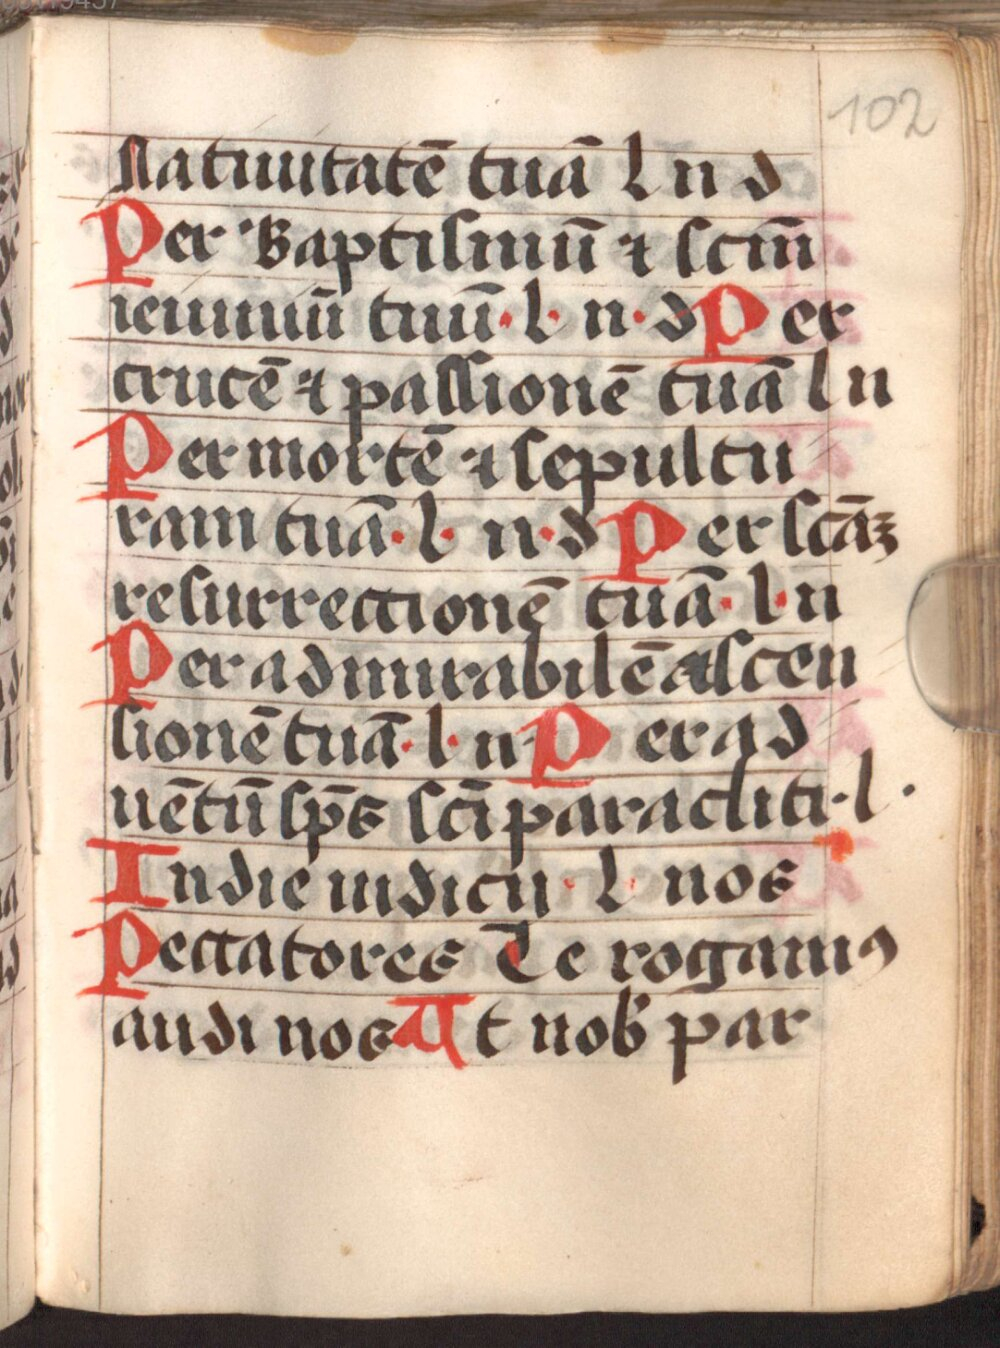 102
Natiuitatē tuā l n d
Per Baptismū ⁊ scm̄
ieiuniū tuū · l · n · d Per
crucē ⁊ passionē tuā l n
Per mortē ⁊ sepultu
ram tuā · l · n · d Per scāꝫ
resurrectionē tuā · l · n
Per admirabilē ascen
sionē tuā · l · n · Per ad
uētū sp̄s sc̄i paracliti · l ·
In die iudicii · l · nos
Peccatores Te rogamꝰ
audi nos Ut nob̄ par